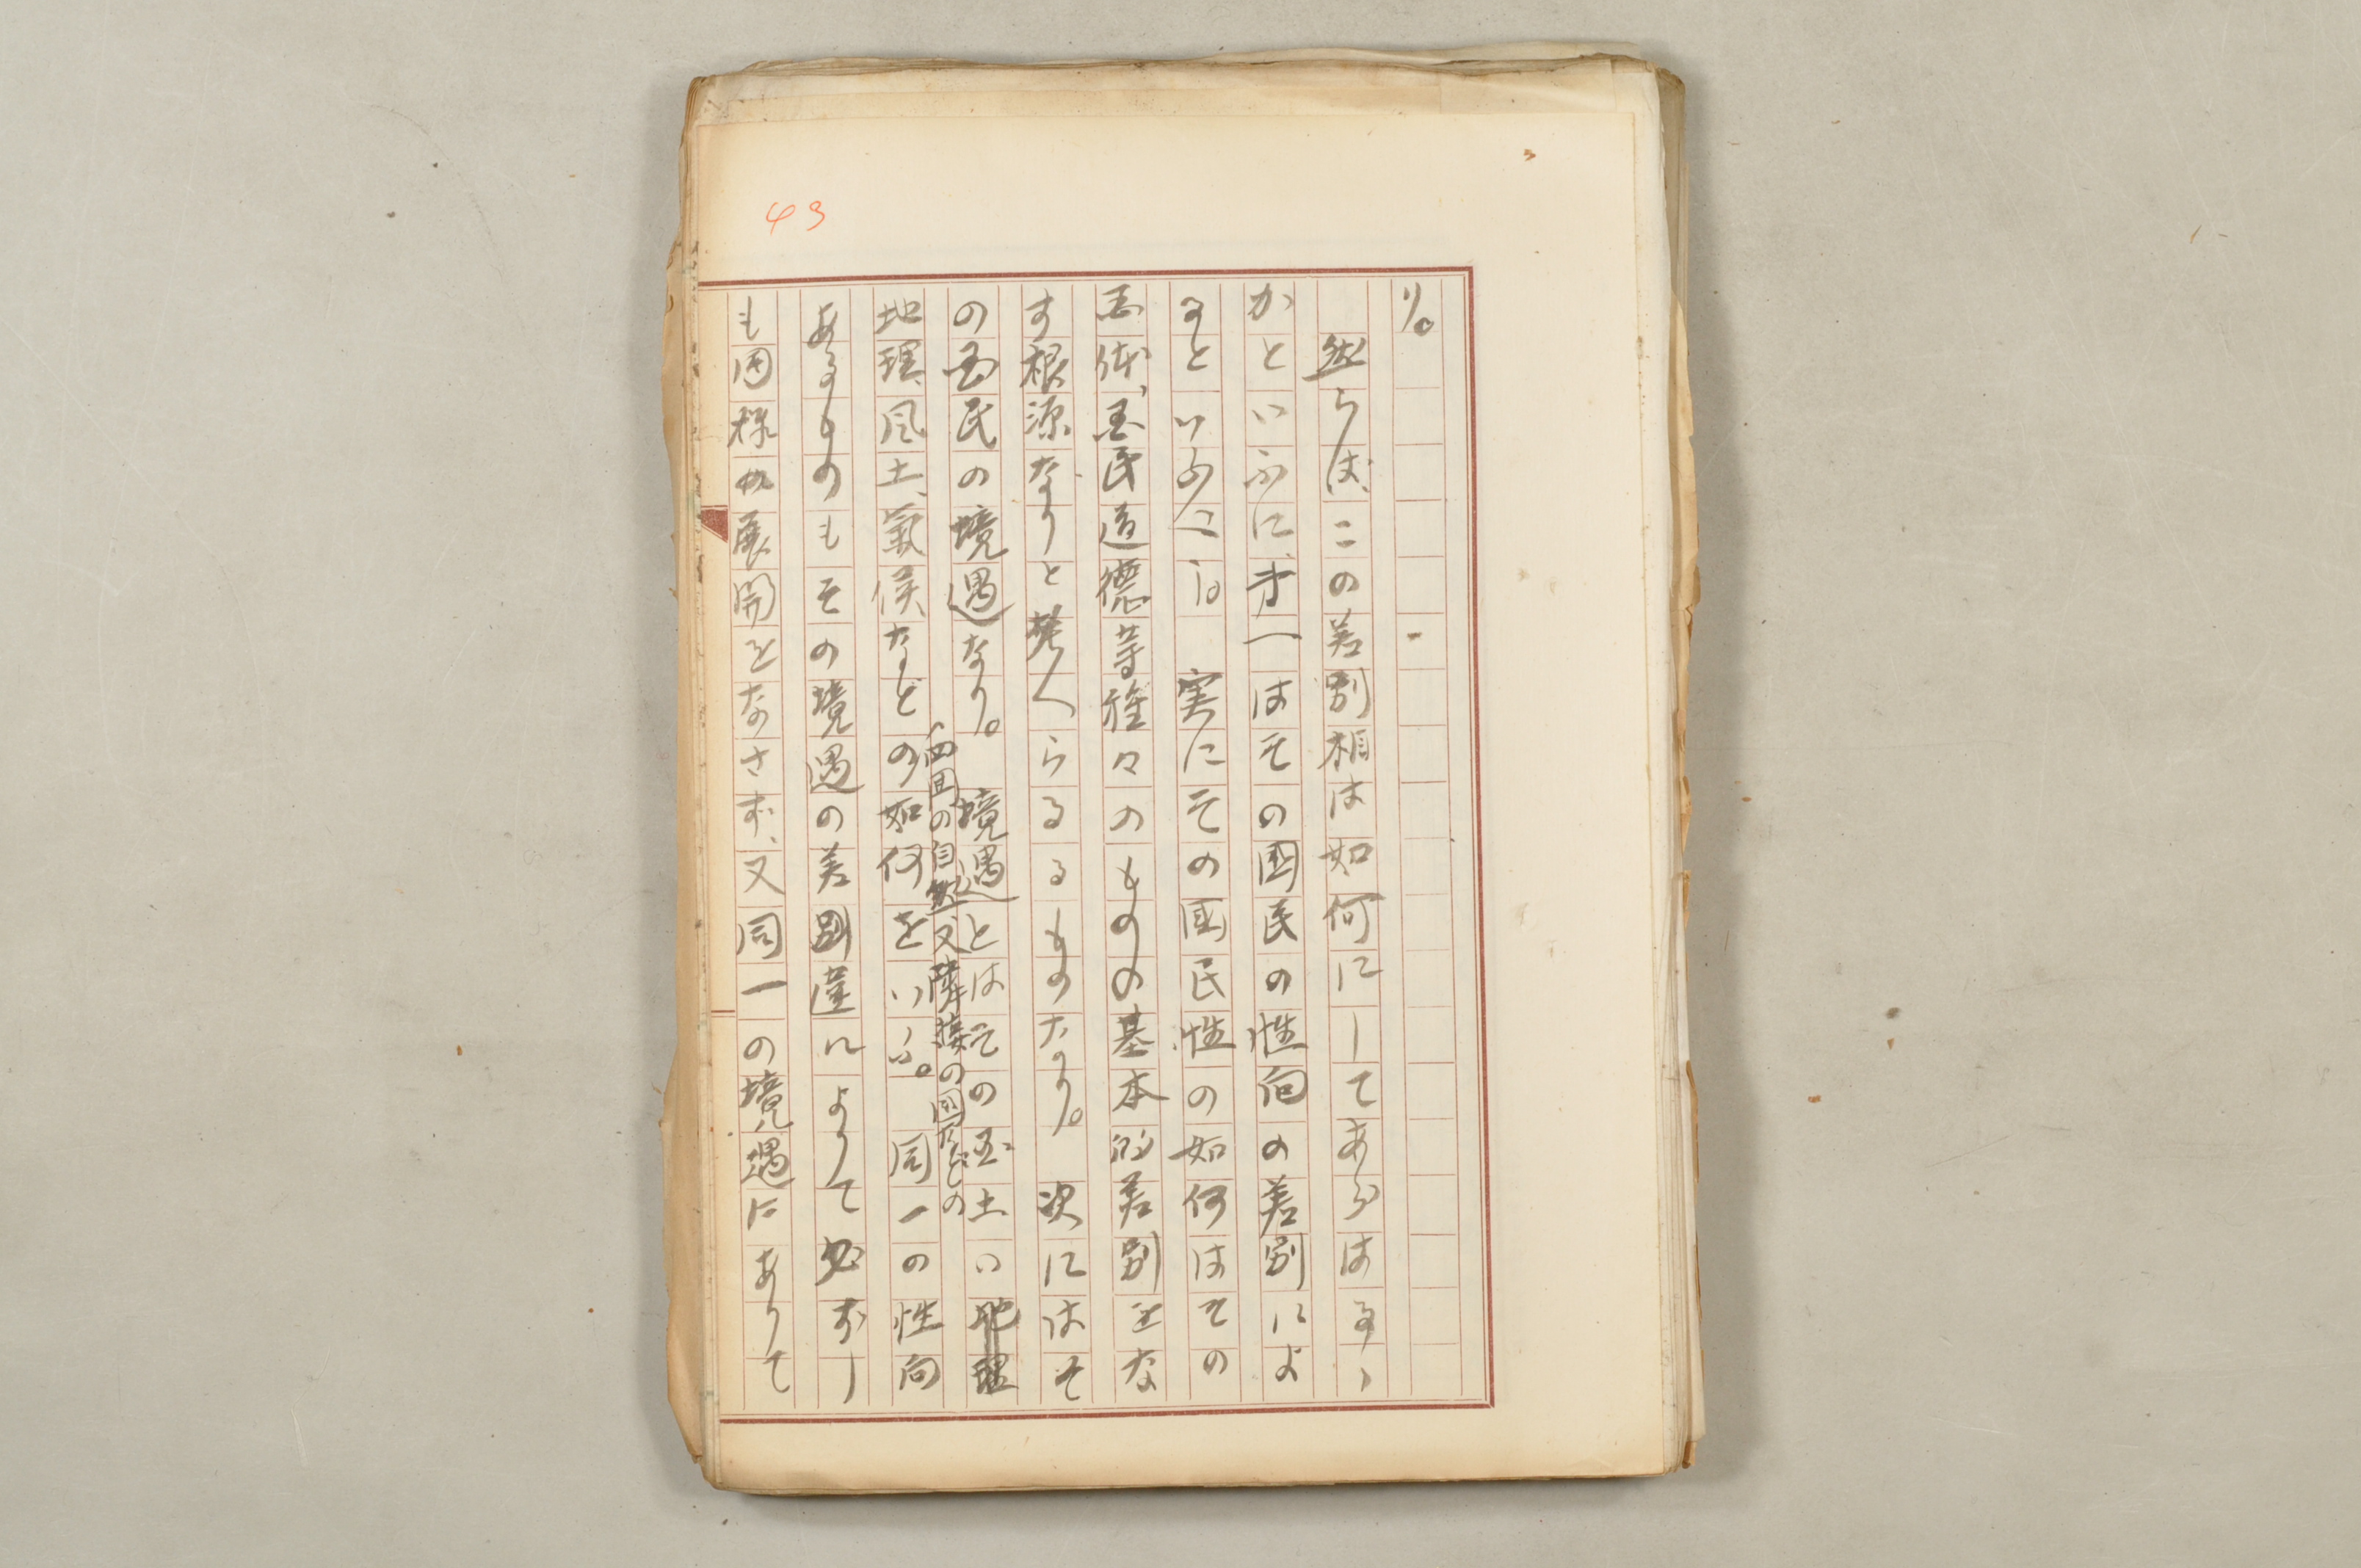 43
り。
然らば、この差別相は如何にしてあらはるゝ
かといふに、才一はその国民の性向の差別によ
るといふべし。実にその国民性の如何はその
国体、国民道徳等種々のものの基本的差別をな
す根源なりと考へらるるものなり。次にはそ
の国民の境遇なり。境遇とはその国土い地理
、四囲の自然又隣接の国などの
地理、風土、氣候、などの如何をいふ。同一の性向
あるものもその境遇の差別違によりて必ずし
も同様の展開をなさず、又同一の境遇にありて